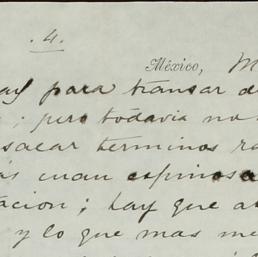 .4.
México, M
ay para transar d
; pero todavia no
sacar terminos ra
as cuan espinosa
tacion; hay que a
y lo que mas me